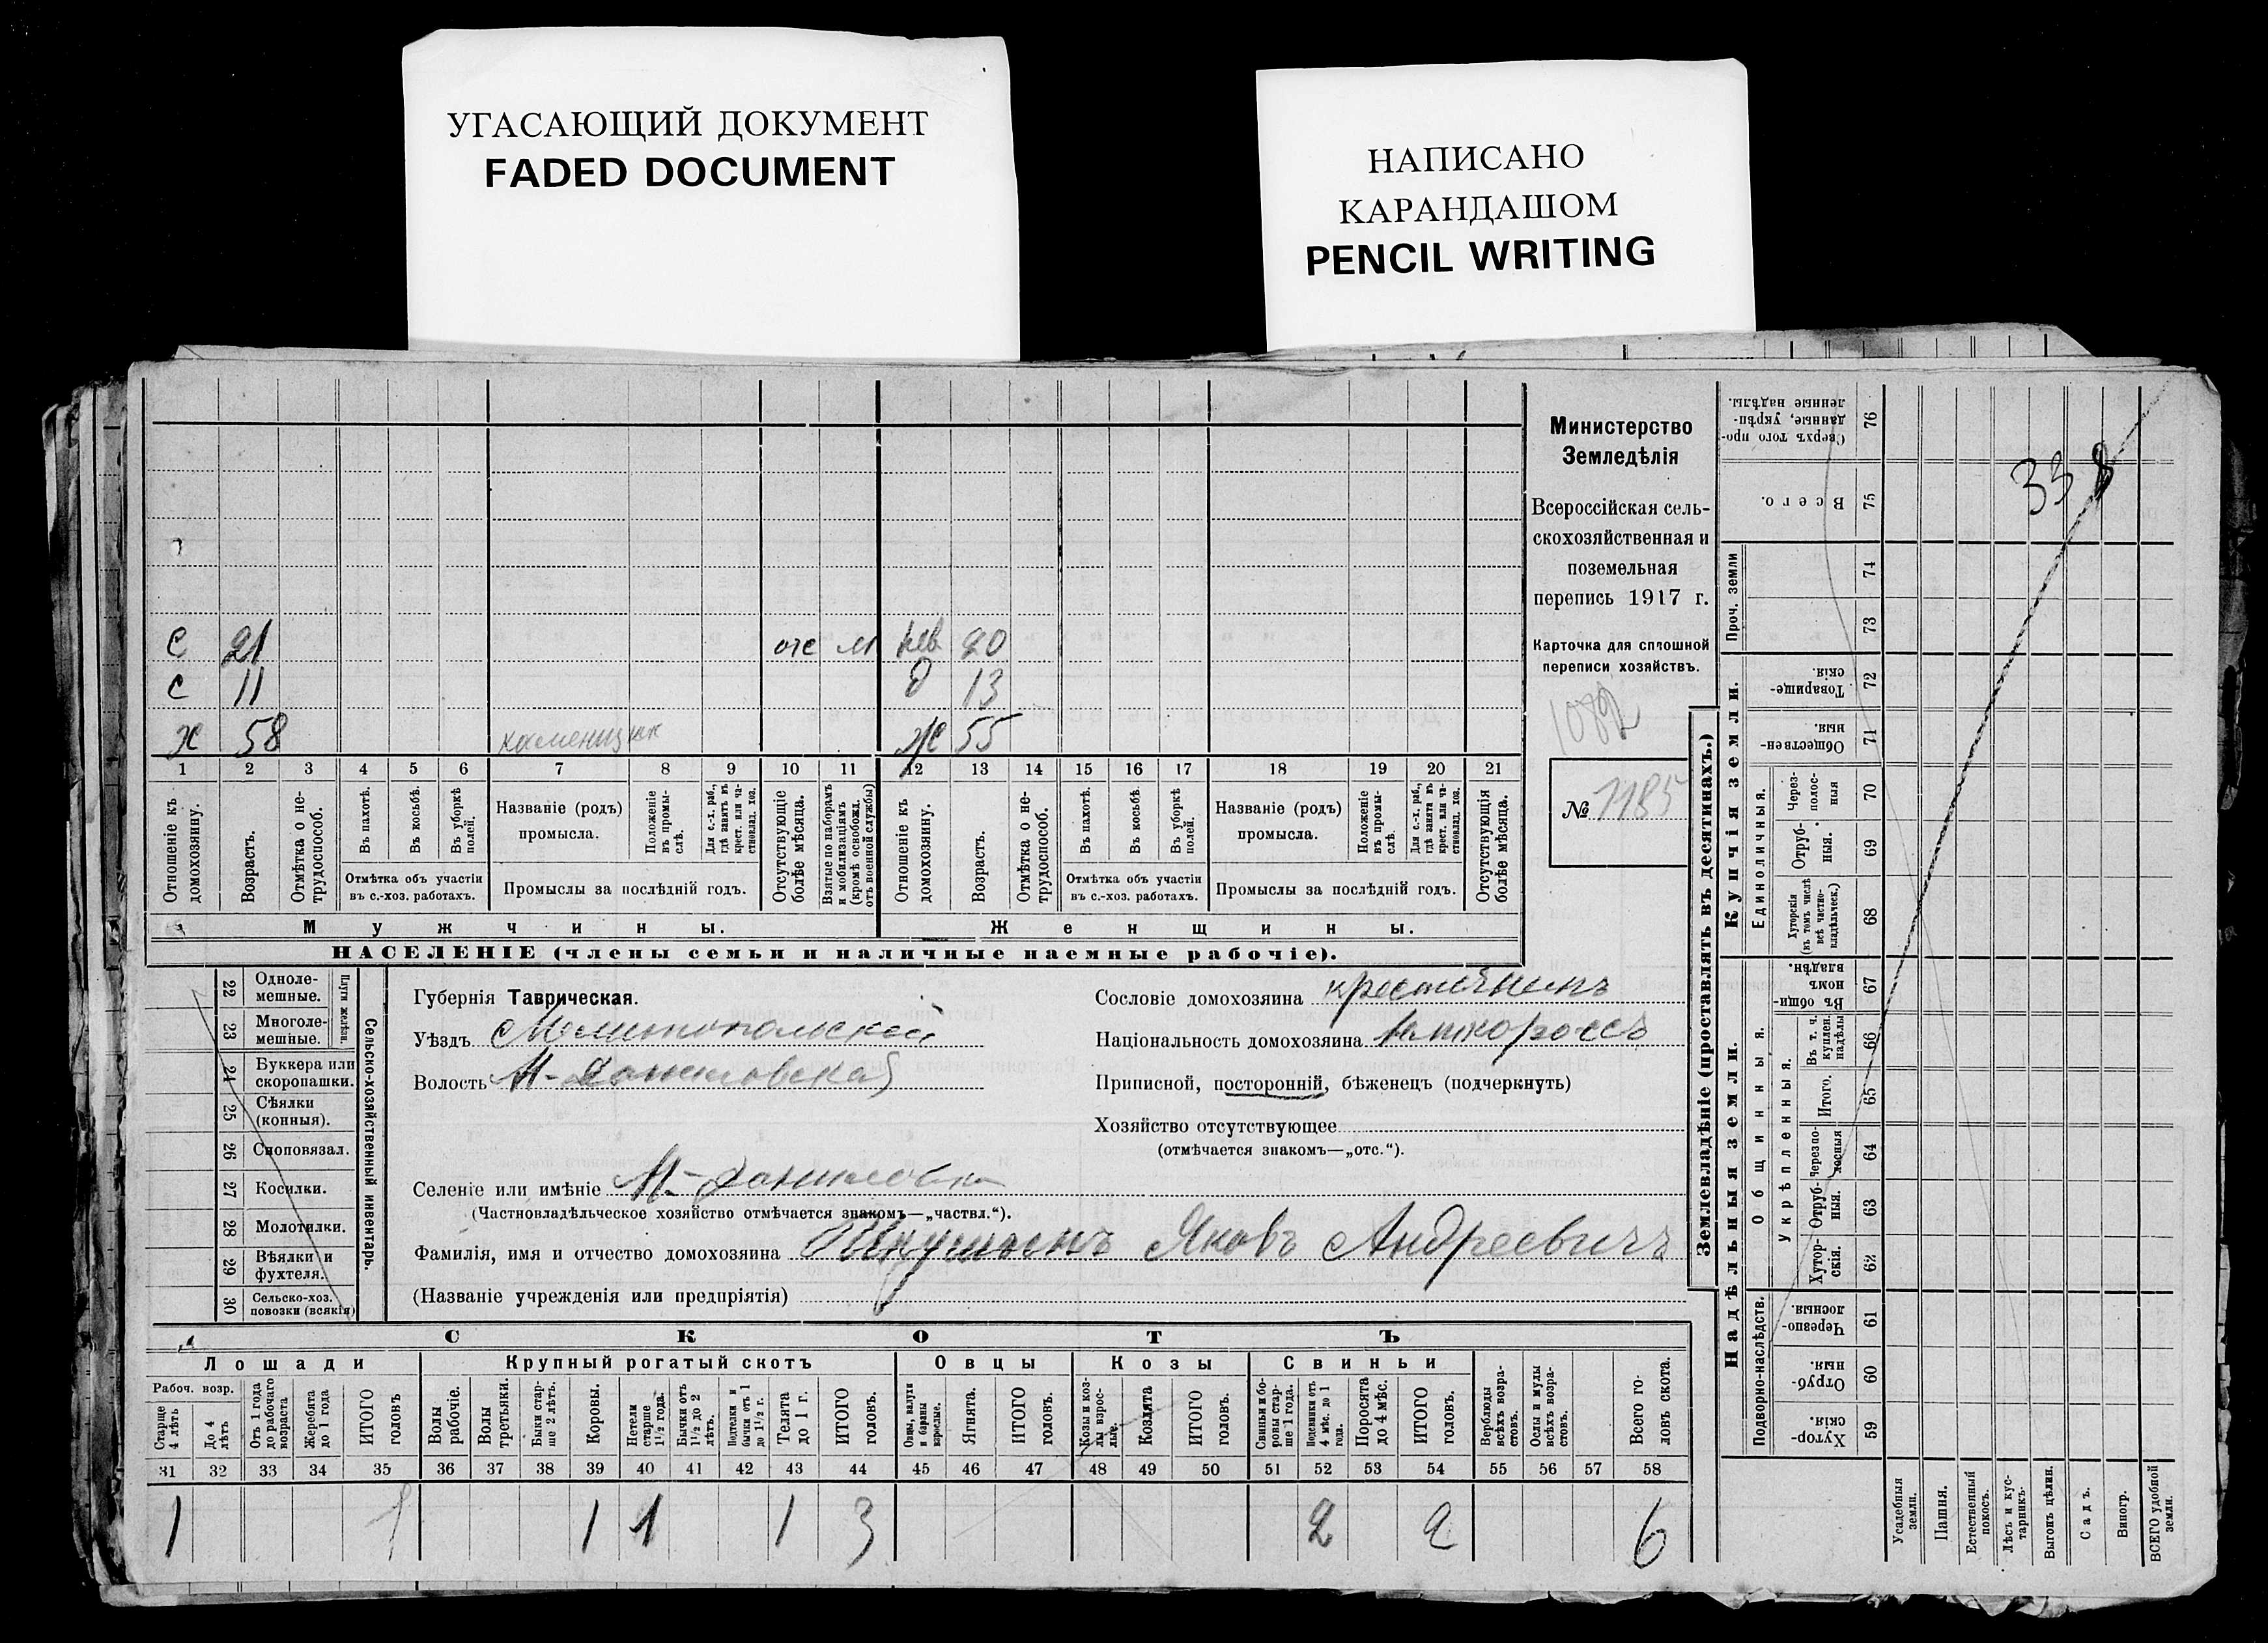 УГАСАЮЩИЙ ДОКУМЕНТ
FADED DOCUMENT
НАПИСАНО
КАРАНДАШОМ
PENCIL WRITING
Министерство
Земледѣлія
Всероссійская сель-
скохозяйственная и
поземельная
перепись 1917 г.
Карточка для сплошной
переписи хозяйствъ.
1082
№ 1185
338
С 21 отс м нев 20
С 11 д 13
х 58 каменщик ж 55
1 2 3 4 5 6 7 8 9 10 11 12 13 14 15 16 17 18 19 20 21
Отношеніе къ домохозяину.
Возрастъ.
Отмѣтка о не-трудоспособ.
Въ пахотѣ.
Въ косьбѣ.
Въ уборкѣ полей.
Отмѣтка объ участіи
въ с.-хоз. работахъ.
Названіе (родъ)
промысла.
Положеніе въ промы-слѣ.
Для с.-х. раб., гдѣ занятъ въ крест. или ча-стновлад. хоз.
Промыслы за послѣдній годъ.
Отсутствующіе болѣе мѣсяца.
Взятые по наборамъ и мобилизаціямъ (кромѣ освобожд. отъ военной службы)
Отношеніе къ домохозяину.
Возрастъ.
Отмѣтка о не-трудоспособ.
Въ пахотѣ.
Въ косьбѣ.
Въ уборкѣ полей.
Отмѣтка объ участіи
въ с.-хоз. работахъ.
Названіе (родъ)
промысла.
Положеніе въ промы-слѣ.
Для с.-х. раб., гдѣ занята въ крест. или ча-стновлад. хоз.
Промыслы за послѣдній годъ.
Отсутствующія болѣе мѣсяца.
Мужчины. Женщины.
НАСЕЛЕНІЕ (члены семьи и наличные наемные рабочіе).
22 Одноле-мешные.
23 Многоле-мешные.
Плуги желѣзн.
24 Буккера или скоропашки.
25 Сѣялки (конныя).
26 Сноповязал.
27 Косилки.
28 Молотилки.
29 Вѣялки и фухтеля.
30 Сельско-хоз. повозки (всякія)
Сельско-хозяйственный инвентарь.
Губернія Таврическая.
Уѣздъ Мелитопольскій
Волость М-Даниловская
Селеніе или имѣніе М-Даниловка
(Частновладѣльческое хозяйство отмѣчается знакомъ—„частвл.“).
Сословіе домохозяина крестьянинъ
Національность домохозяина
Приписной, посторонній, бѣженецъ (подчеркнуть)
Хозяйство отсутствующее
(отмѣчается знакомъ—„отс.“).
Фамилія, имя и отчество домохозяина Яковъ Андреевичъ
(Названіе учрежденія или предпріятія)
СКОТЪ
Лошади Крупный рогатый скотъ Овцы Козы Свиньи
Рабоч. возр.
Старше 4 лѣтъ
До 4 лѣтъ
Отъ 1 года до рабочаго возраста
Жеребята до 1 года
ИТОГО головъ
Волы рабочіе.
Волы третьяки.
Быки стар-ше 2 лѣтъ.
Коровы.
Нетели старше 1½ года.
Бычки отъ 1½ до 2 лѣтъ.
Подтелки и бычки отъ 1 до 1½ г.
Телята до 1 г.
ИТОГО головъ.
Овцы, валухи и бараны взрослые.
Ягнята.
ИТОГО головъ.
Козы и коз-лы взрос-лые.
Козлята
ИТОГО головъ.
Свиньи и бо-ровы стар-ше 1 года.
Подсвинки отъ 4 мѣс. до 1 года.
Поросята до 4 мѣс.
ИТОГО головъ.
Верблюды всѣхъ возра-стовъ.
Ослы и мулы всѣхъ возра-стовъ.
Всего го-ловъ скота.
31 32 33 34 35 36 37 38 39 40 41 42 43 44 45 46 47 48 49 50 51 52 53 54 55 56 57 58
1 1 1 1 1 3 2 2 6
Землевладѣніе (проставлять въ десятинахъ.)
Надѣльныя земли. Купчія земли.
Подворно-наслѣдств.
Общинныя.
Укрѣпленныя.
Единоличныя.
Проч. земли
Сверхъ того про-данные, укрѣп-ленные надѣлы. 76
Всего. 75
74
73
Товарище-скія. 72
Обществен-ныя. 71
Через-полос-ныя 70
Отруб-ныя. 69
Хуторскія (въ томъ числѣ всѣ частно-владѣльческ.) 68
Въ общи-номъ владѣн. 67
Въ т. ч. куплен. надѣлы 66
Итого. 65
Черезпо-лосныя 64
Отруб-ныя. 63
Хутор-скія. 62
Черезпо-лосныя. 61
Отруб-ныя. 60
Хутор-скія. 59
Усадебныя земли.
Пашня.
Естественный покосъ.
Лѣсъ и кус-тарникъ.
Выгонъ цѣлин.
Садъ.
Виногр.
ВСЕГО удобной земли.